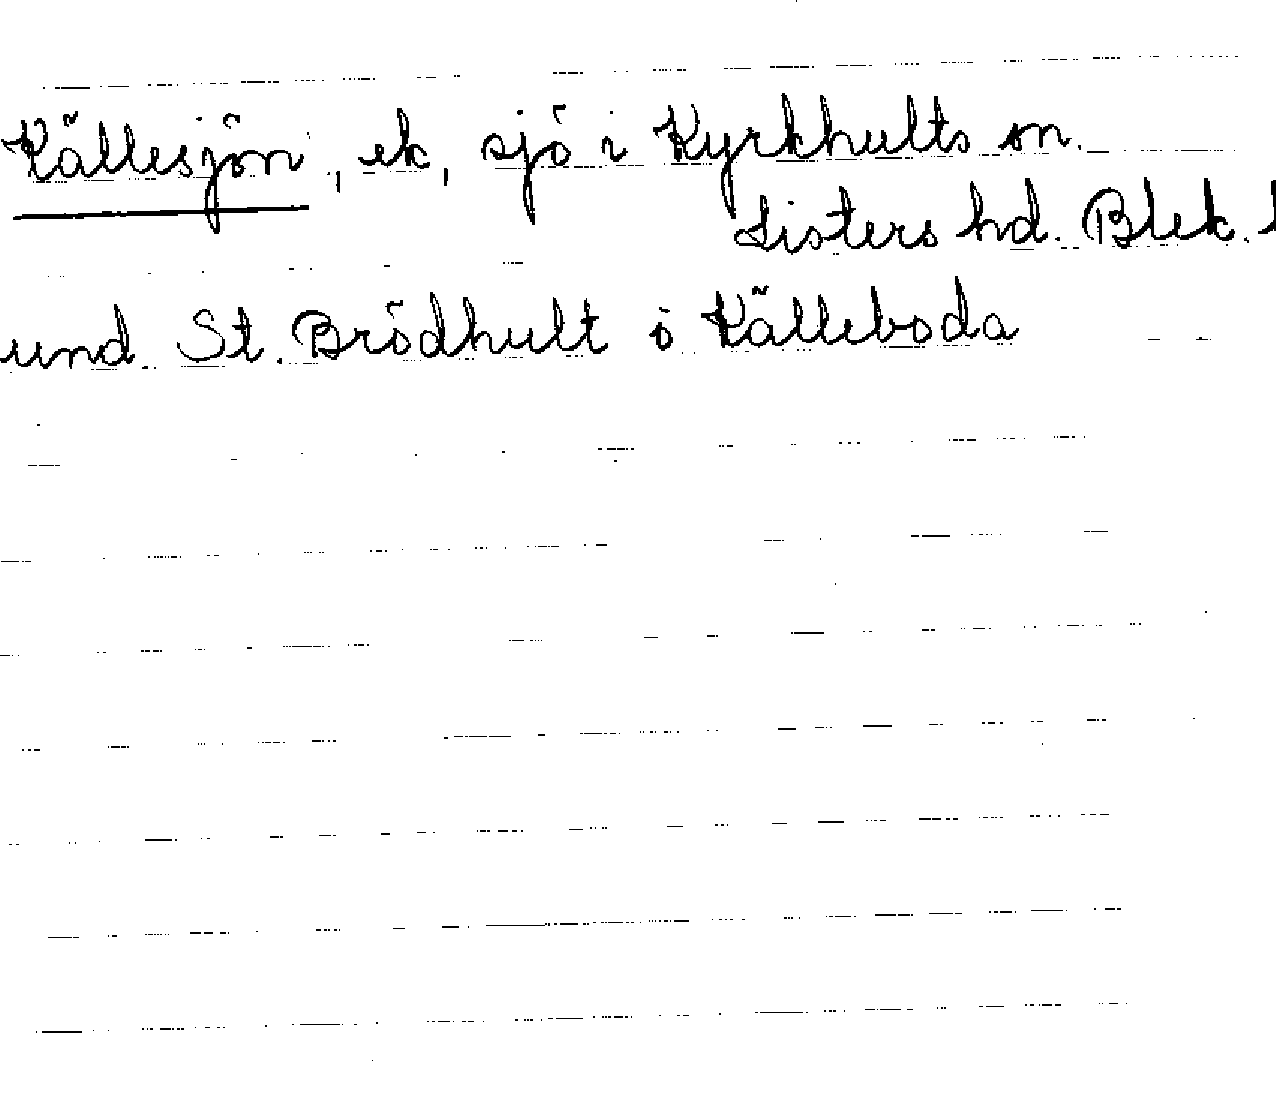 Källesjön, ek, sjö i Kyrkhults sn.
Listers hd. Blek. l
und. St. Brödhult o Källeboda